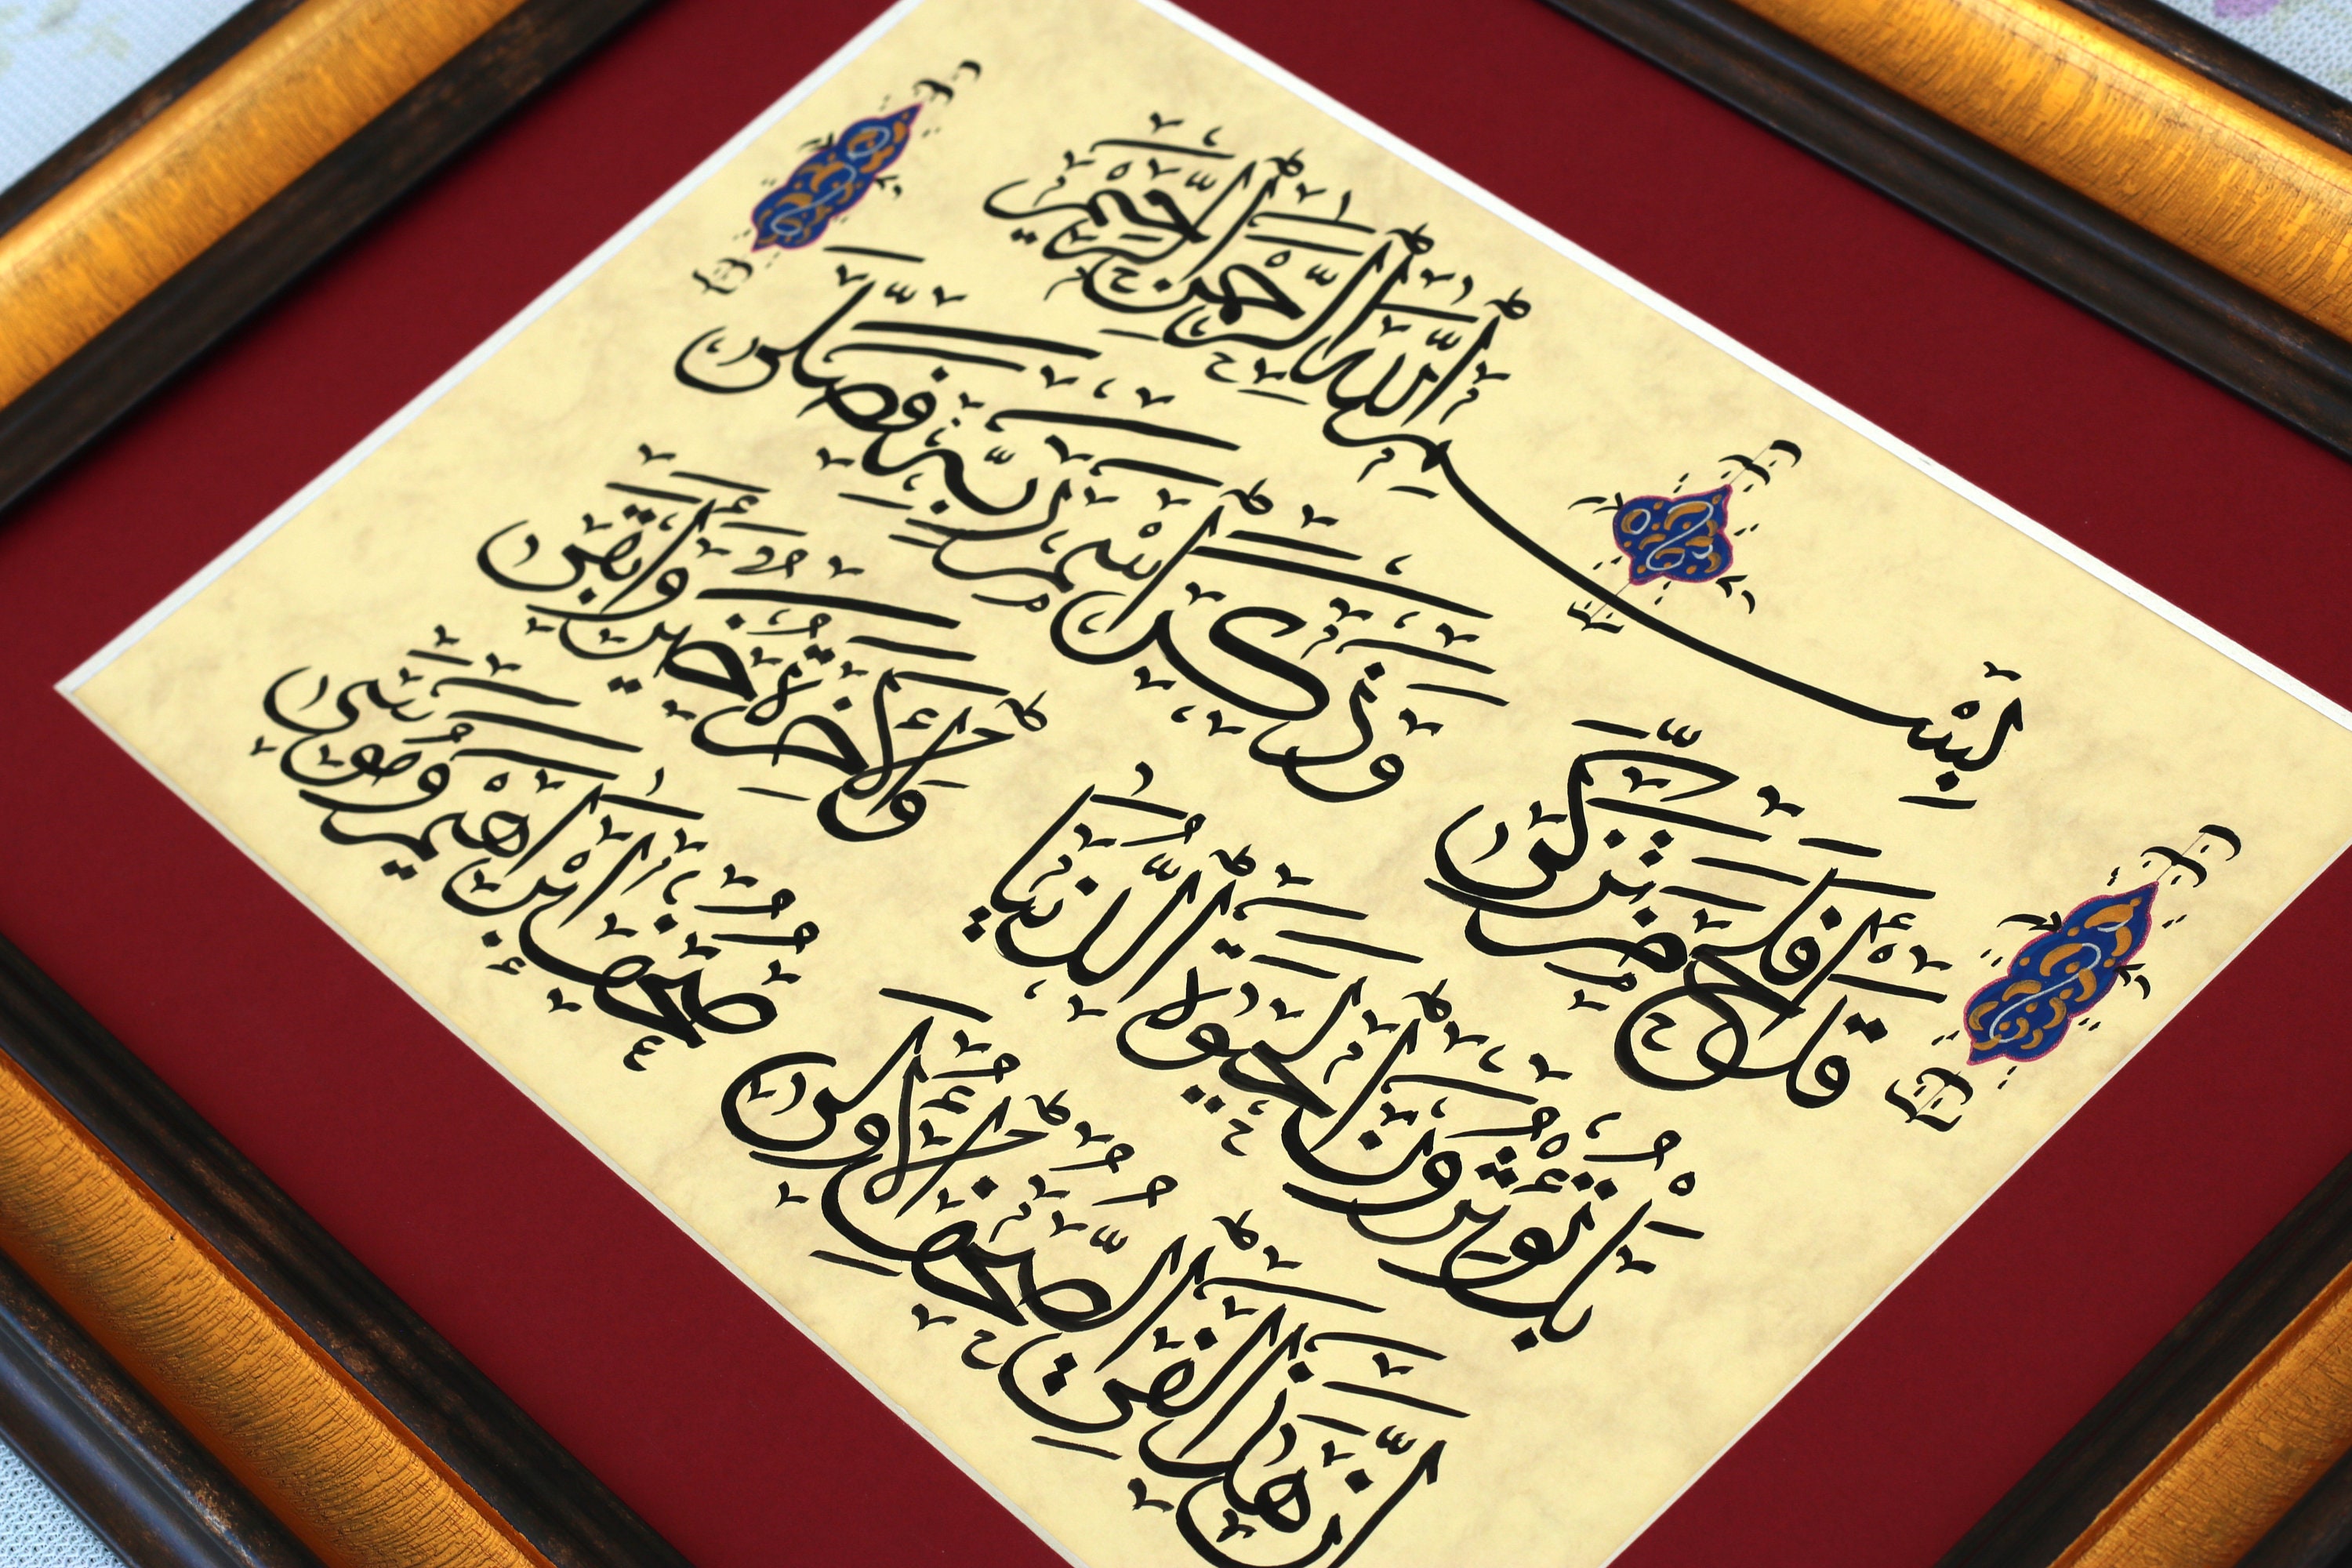 بِسْمِ اللّٰهِ الرَّحْمٰنِ الرَّحِيمِ
قَدْ اَفْلَحَ مَنْ تَزَكّٰى وَذَكَرَ اسْمَ رَبِّهٖ فَصَلّٰى
بَلْ تُؤْثِرُونَ الْحَيٰوةَ الدُّنْيَا وَالْاٰخِرَةُ خَيْرٌ وَاَبْقٰى
اِنَّ هٰذَا لَفِى الصُّحُفِ الْاُولٰى صُحُفِ اِبْرٰهِيمَ وَمُوسٰى